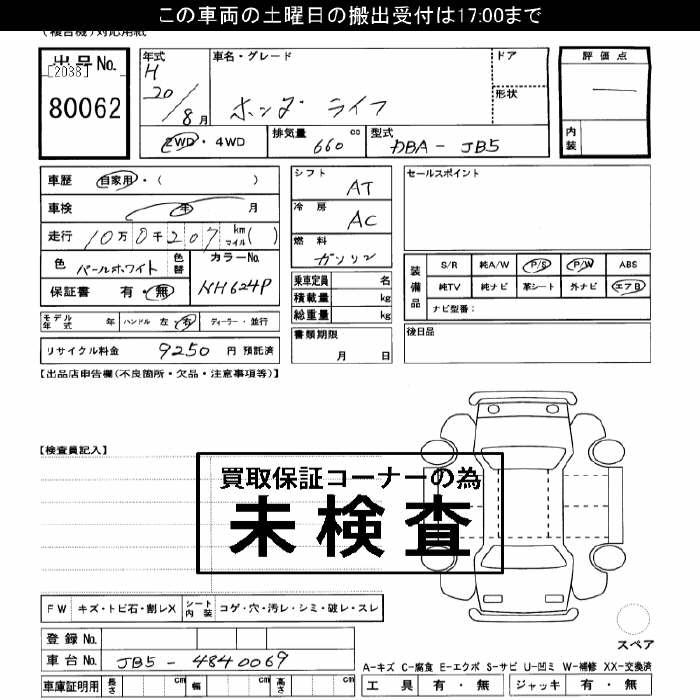 この車両の土曜日の搬出受付は17:00まで
(複合機)対応用紙
出品No.
[2038]
80062
年式
H
20/8月
車名・グレード
ホンダ ライフ
ドア
形状
2WD・4WD
排気量
660 cc
型式
DBA-JB5
評価点
—
内装
車歴 自家用・( )
車検 年 月
走行 10万0千207 km マイル( )
色 パールホワイト 色替
カラーNo.
NH624P
保証書 有・無
モデル年式 年 ハンドル 左 右 ディーラー・並行
リサイクル料金 9250 円 預託済
シフト
AT
冷房
AC
燃料
ガソリン
乗車定員 名
積載量 kg
総重量 kg
書類期限
月 日
セールスポイント
装備品
S/R 純A/W P/S P/W ABS
純TV 純ナビ 革シート 外ナビ エアB
ナビ型番:
後日品
【出品店申告欄(不良箇所・欠品・注意事項等)】
【検査員記入】
買取保証コーナーの為
未検査
FW キズ・トビ石・割レX シート内装 コゲ・穴・汚レ・シミ・破レ・スレ
登録No.
車台No. JB5-4840069
車庫証明用 長さ cm 幅 cm 高さ cm
スペア
A-キズ C-腐食 E-エクボ S-サビ U-凹ミ W-補修 XX-交換済
工具 有・無 ジャッキ 有・無